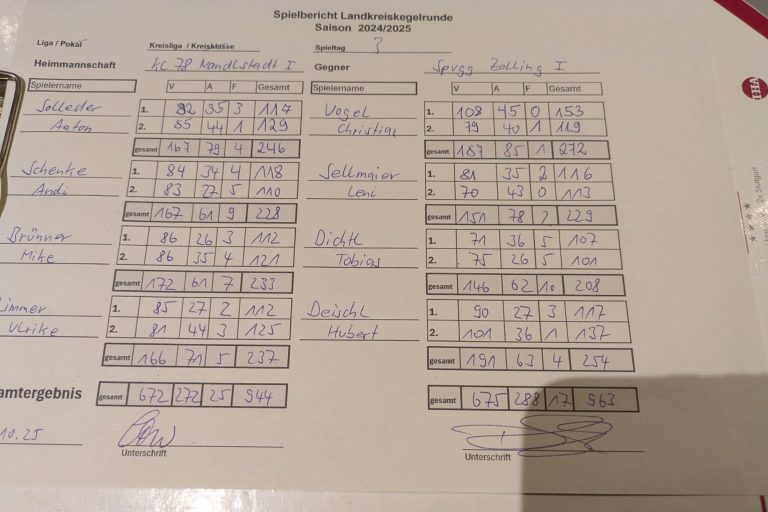 Spielbericht Landkreiskegelrunde
Saison 2024/2025
Liga / Pokal Kreisliga / Kreisklasse Spieltag 3
Heimmannschaft KC 78 Nandlstadt I Gegner Spvgg Zolling I
Spielername V A F Gesamt Spielername V A F Gesamt
Solleder 1. 82 35 3 117 Vogel 1. 108 45 0 153
Anton 2. 85 44 1 129 Christian 2. 79 40 1 119
gesamt 167 79 4 246 gesamt 187 85 1 272
Schenke 1. 84 34 4 118 Sellmaier 1. 81 35 2 116
Andi 2. 83 27 5 110 Leni 2. 70 43 0 113
gesamt 167 61 9 228 gesamt 151 78 2 229
Brünner 1. 86 26 3 112 Dichtl 1. 71 36 5 107
Mike 2. 86 35 4 121 Tobias 2. 75 26 5 101
gesamt 172 61 7 233 gesamt 146 62 10 208
immer 1. 85 27 2 112 Deischl 1. 90 27 3 117
Ulrike 2. 81 44 3 125 Hubert 2. 101 36 1 137
gesamt 166 71 5 237 gesamt 191 63 4 254
amtergebnis gesamt 672 272 25 944 gesamt 675 288 17 963
10.25
Unterschrift Unterschrift